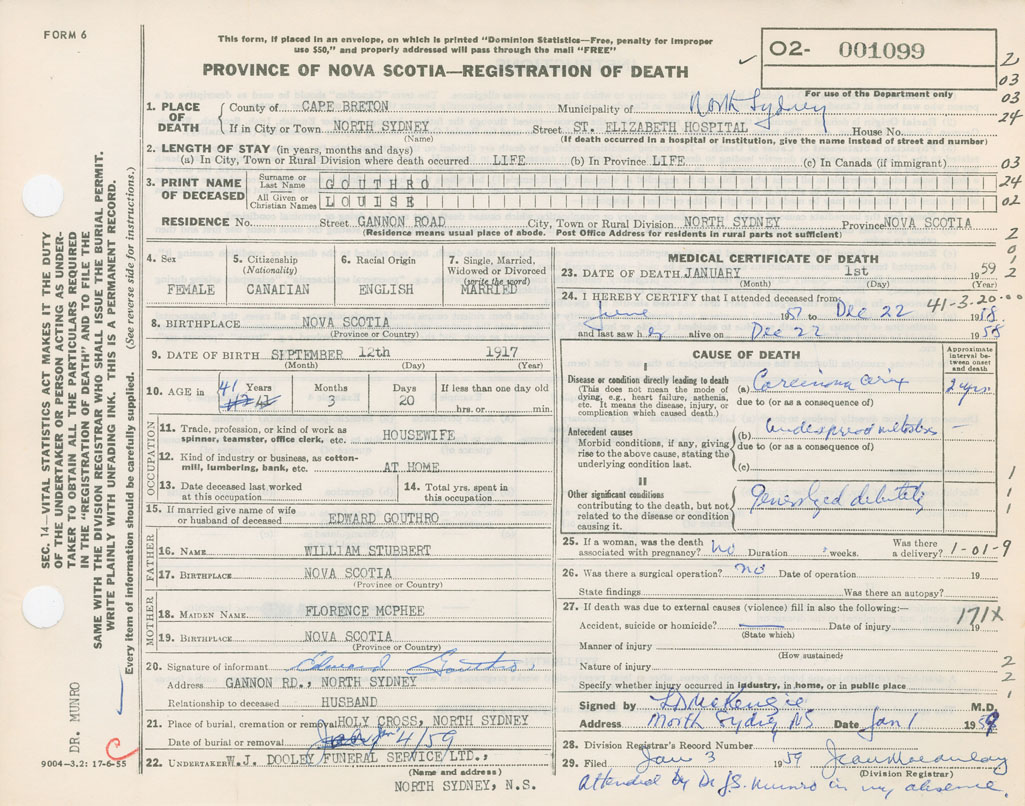 FORM 6
This form, if placed in an envelope, on which is printed "Dominion Statistics—Free, penalty for improper
use $50," and properly addressed will pass through the mail "FREE"
PROVINCE OF NOVA SCOTIA—REGISTRATION OF DEATH
02- 001099
For use of the Department only
2
03
03
24
03
24
02
2
0
1
2
1. PLACE OF DEATH
County of CAPE BRETON Municipality of North Sydney
If in City or Town NORTH SYDNEY Street ST. ELIZABETH HOSPITAL House No.
(Name) (If death occurred in a hospital or institution, give the name instead of street and number)
2. LENGTH OF STAY (in years, months and days)
(a) In City, Town or Rural Division where death occurred LIFE (b) In Province LIFE. (c) In Canada (if immigrant)
3. PRINT NAME OF DECEASED
Surname or Last Name GOUTHRO
All Given or Christian Names LOUISE
RESIDENCE No. Street GANNON ROAD City, Town or Rural Division NORTH SYDNEY Province NOVA SCOTIA
(Residence means usual place of abode. Post Office Address for residents in rural parts not sufficient)
4. Sex
FEMALE
5. Citizenship
(Nationality)
CANADIAN
6. Racial Origin
ENGLISH
7. Single, Married,
Widowed or Divorced
(write the word)
MARRIED
8. BIRTHPLACE NOVA SCOTIA
(Province or Country)
9. DATE OF BIRTH SEPTEMBER 12th 1917
(Month) (Day) (Year)
10. AGE in 41 Years Months 3 Days 20 If less than one day old
hrs. or min.
OCCUPATION
11. Trade, profession, or kind of work as
spinner, teamster, office clerk, etc. HOUSEWIFE
12. Kind of industry or business, as cotton-
mill, lumbering, bank, etc. AT HOME
13. Date deceased last worked
at this occupation
14. Total yrs. spent in
this occupation
15. If married give name of wife
or husband of deceased EDWARD GOUTHRO
FATHER
16. NAME WILLIAM STUBBERT
17. BIRTHPLACE NOVA SCOTIA
(Province or Country)
MOTHER
18. MAIDEN NAME FLORENCE MCPHEE
19. BIRTHPLACE NOVA SCOTIA
(Province or Country)
20. Signature of informant Edward Gouthro
Address GANNON RD., NORTH SYDNEY
Relationship to deceased HUSBAND
21. Place of burial, cremation or removal HOLY CROSS, NORTH SYDNEY
Date of burial or removal Jan 4/59
22. UNDERTAKER W.J. DOOLEY FUNERAL SERVICE LTD.,
(Name and address)
NORTH SYDNEY, N.S.
MEDICAL CERTIFICATE OF DEATH
23. DATE OF DEATH JANUARY 1st 1959
(Month) (Day) (Year)
24. I HEREBY CERTIFY that I attended deceased from 41-3-20
June 1957 to Dec 22 1958
and last saw her alive on Dec 22 1958
CAUSE OF DEATH
Approximate
interval be-
tween onset
and death
I
Disease or condition directly leading to death
(This does not mean the mode of
dying, e.g., heart failure, asthenia,
etc. It means the disease, injury, or
complication which caused death.)
(a) Carcinoma cervix 2 yrs
due to (or as a consequence of)
Antecedent causes
Morbid conditions, if any, giving
rise to the above cause, stating the
underlying condition last.
(b) widespread metastases —
due to (or as a consequence of)
(c)
II
Other significant conditions
contributing to the death, but not
related to the disease or condition
causing it.
generalized debility
1
1
1
25. If a woman, was the death
associated with pregnancy? no Duration weeks. Was there
a delivery? 1-01-9
26. Was there a surgical operation? no Date of operation 19
State findings Was there an autopsy?
27. If death was due to external causes (violence) fill in also the following:—
171X
Accident, suicide or homicide? Date of injury 19
(State which)
Manner of injury
(How sustained)
Nature of injury
2
2
1
Specify whether injury occurred in industry, in home, or in public place
Signed by McKenzie M.D.
Address North Sydney NS Date Jan 1 1959
28. Division Registrar's Record Number
29. Filed Jan 3 1959
(Division Registrar)
attended by Dr J.S. Munro in my absence.
SEC. 14—VITAL STATISTICS ACT MAKES IT THE DUTY
OF THE UNDERTAKER OR PERSON ACTING AS UNDER-
TAKER TO OBTAIN ALL THE PARTICULARS REQUIRED
IN THE "REGISTRATION OF DEATH" AND TO FILE THE
SAME WITH THE DIVISION REGISTRAR WHO SHALL ISSUE THE BURIAL PERMIT.
WRITE PLAINLY WITH UNFADING INK. THIS IS A PERMANENT RECORD.
Every item of information should be carefully supplied. (See reverse side for instructions.)
DR. MUNRO
C
9004-3.2: 17-6-55